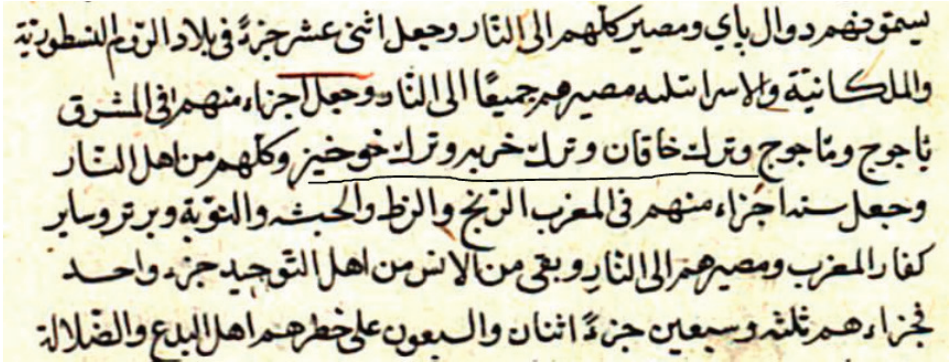 يسمتو نهم دوال باي ومصير كلهم الى النار وجعل اثنى عشر جزءً فى بلاد الروم النسطورية
والملكانيّة والاسرائيليه مصيرهم جميعًا الى النار وجعل اجزاء منهم فى المشرق
ياجوج وماجوج وترك خاقان وترك خربه وترك خوخيز وكلهم من اهل النّار
وجعل ستة اجزاء منهم فى المغرب الزنج والزط والحبشه والنوبة وبربر وساير
كفار المغرب ومصيرهم الى النار وبقى من الانس من اهل التوحيد جزء واحد
فجزاءهم ثلثه وسبعين جزءً اثنان والسبعون على خطرهم اهل البدع والضلالة